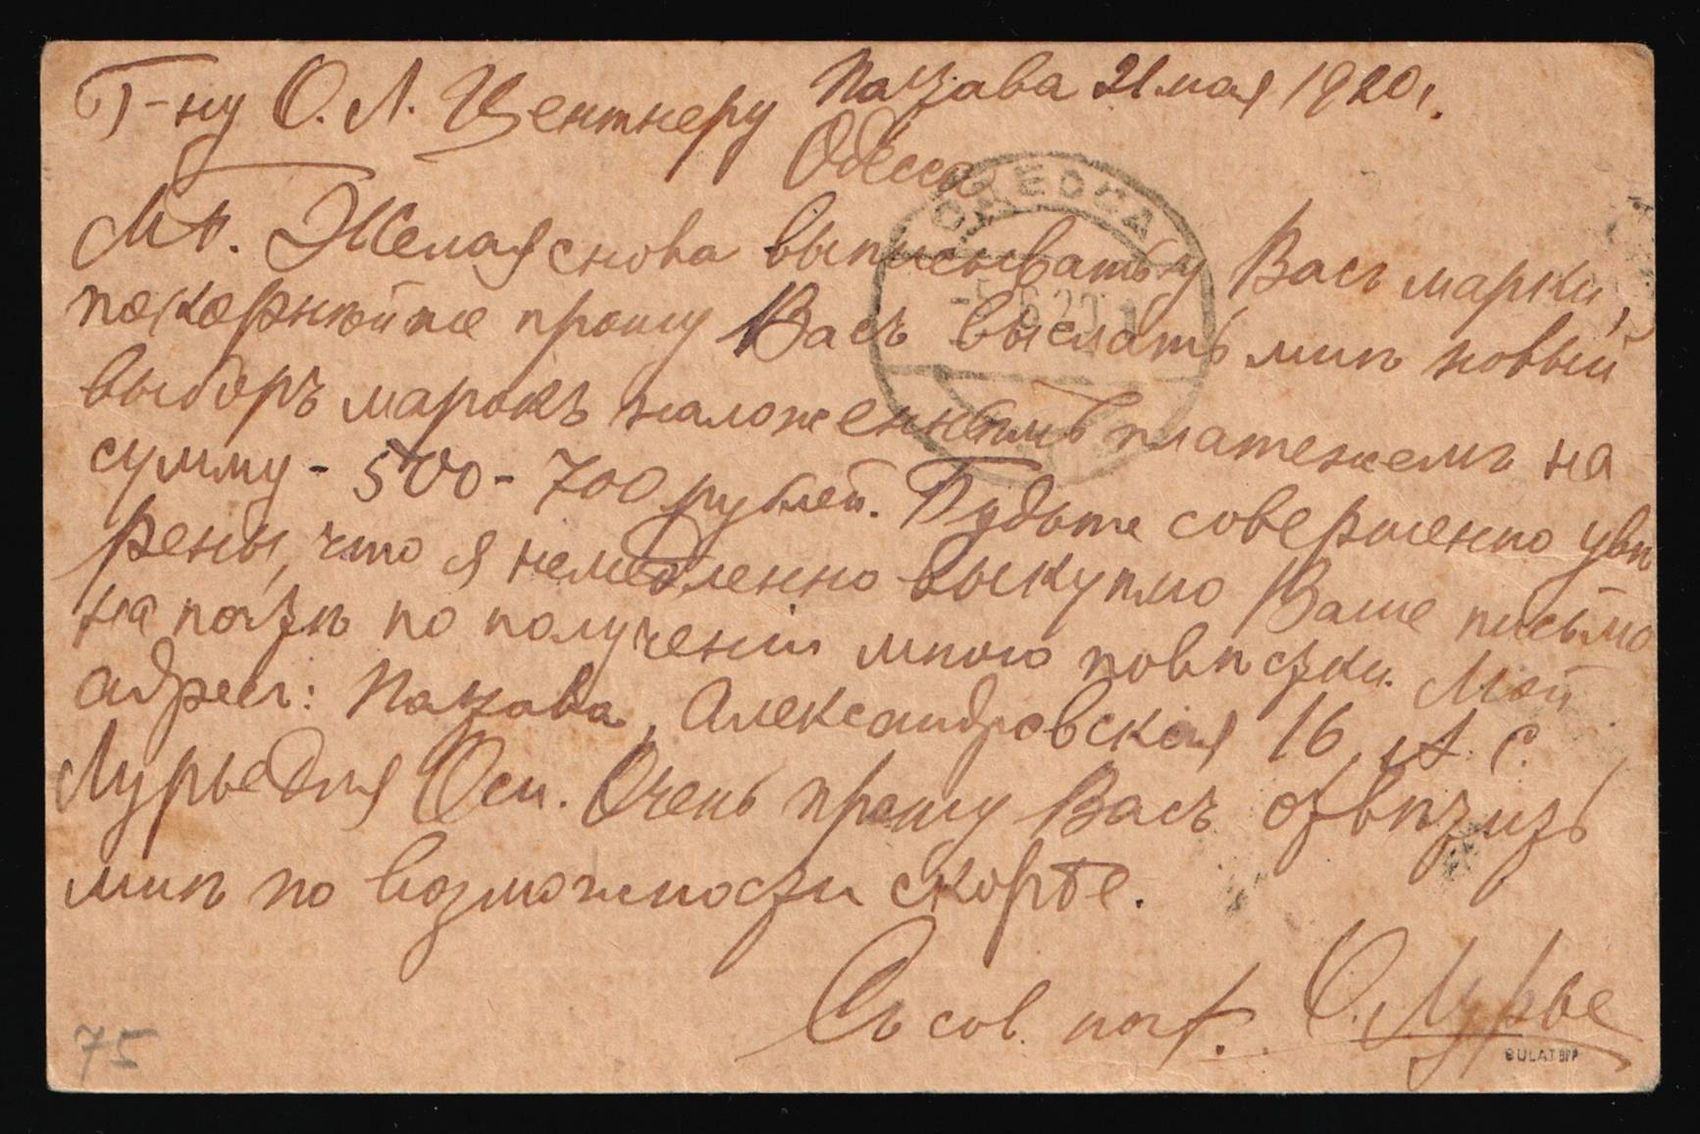 Г-ну О. Л. Центнеру Полтава 21 мая 1920 г.
Одесса
ОДЕССА
М. Г. Желая снова выписывать у Васъ марки,
покорнѣйше прошу Васъ выслать мнѣ новый
выборъ марокъ наложеннымъ платежемъ на
сумму - 500 - 700 рублей. Будьте совершенно увѣ
рены, что я немедленно выкуплю Ваше письмо
на почтѣ по полученіи мною повѣстки. Мой
адресъ: Полтава, Александровская 16, А. С.
Лурье для Оси. Очень прошу Васъ отвѣтить
мнѣ по возможности скорѣе.
Съ сов. поч. О. Лурье
75
BULAT BPP